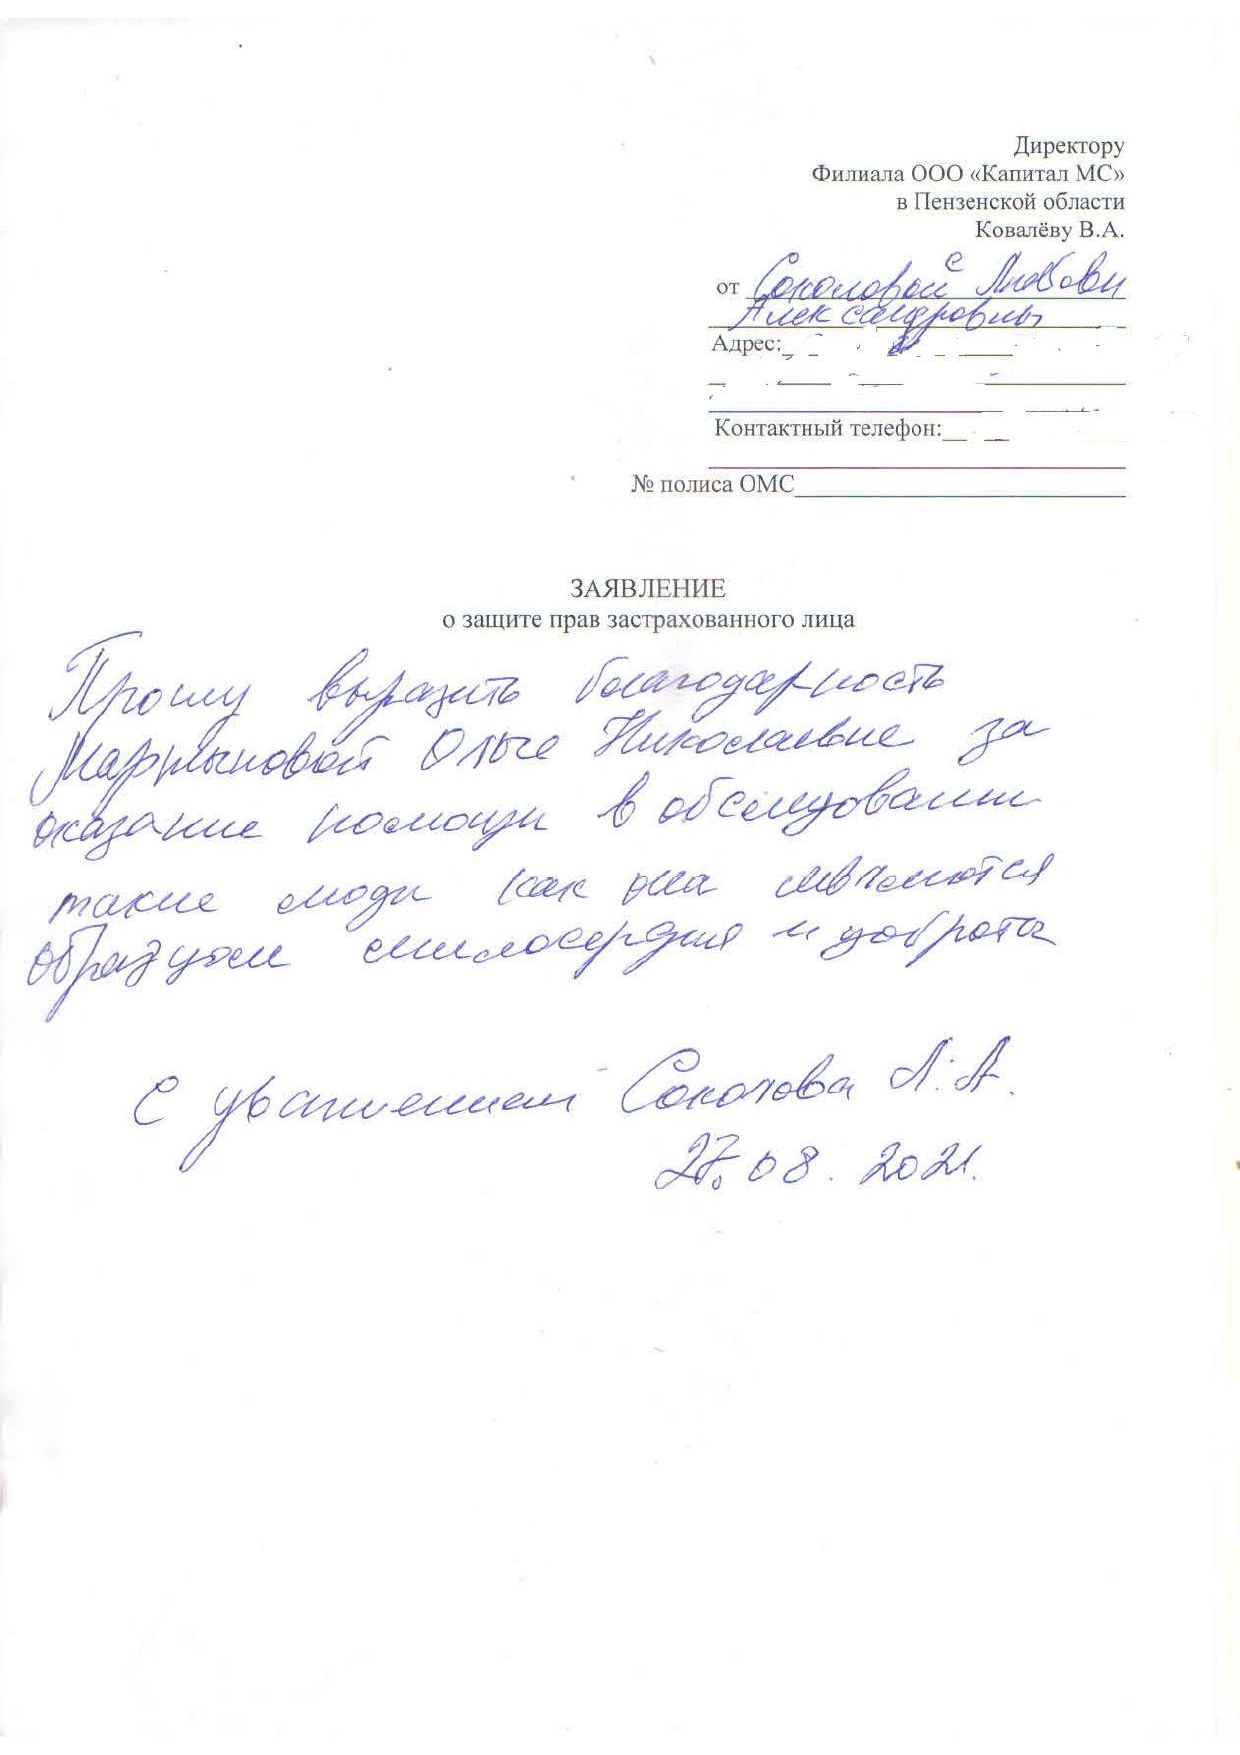 Директору
Филиала ООО «Капитал МС»
в Пензенской области
Ковалёву В.А.
от Соколовой Любови
Александровны
Адрес:
Контактный телефон:
№ полиса ОМС
ЗАЯВЛЕНИЕ
о защите прав застрахованного лица
Прошу выразить благодарность
Мартыновой Ольге Николаевне за
оказание помощи в обследовании
такие люди как она являются
образцом милосердия и доброта
С уважением Соколова Л.А.
27.08.2021.